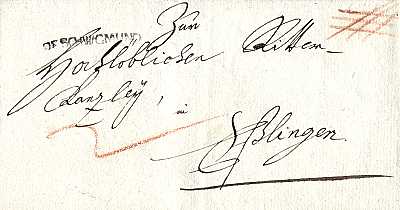 Zur
DE SCHW.GMUND
Hochlöblichen Ritter-
Kanzley,
in
Eßlingen